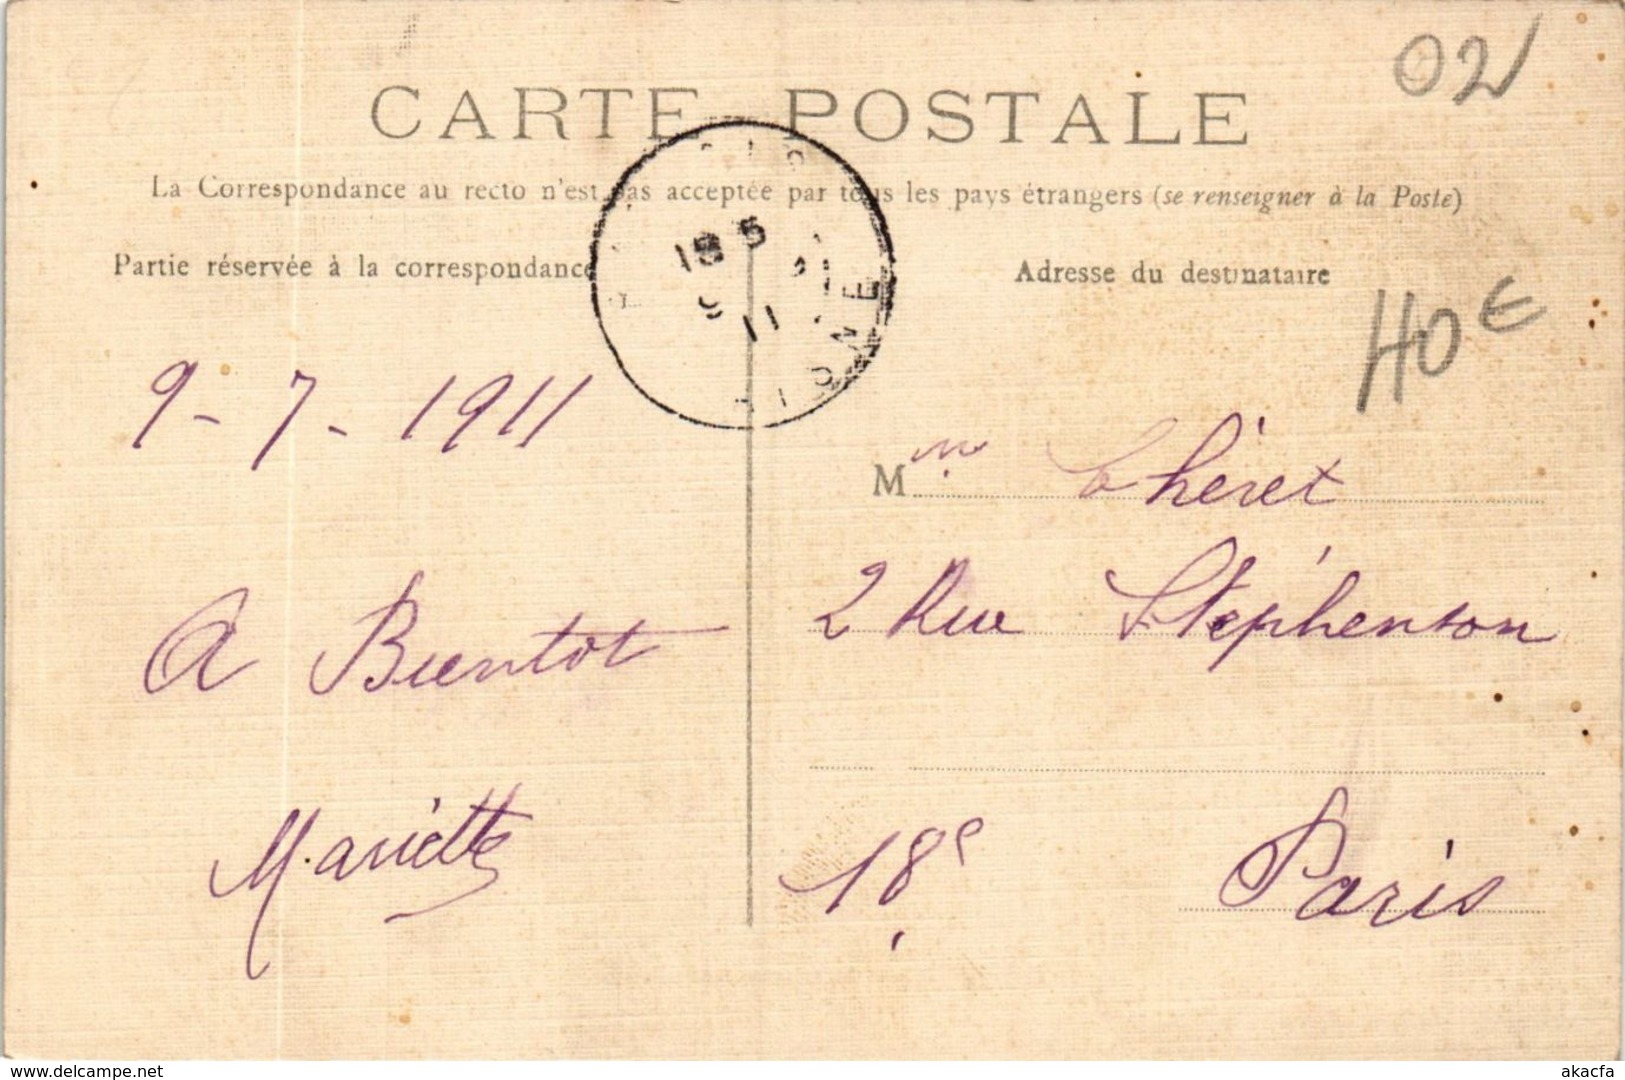 02
CARTE POSTALE
La Correspondance au recto n'est pas acceptée par tous les pays étrangers (se renseigner à la Poste)
Partie réservée à la correspondance
9-7-1911
A Bientot
Mariette
Adresse du destinataire
M m Chéret
2 Rue Stéphenson
18e Paris
www.delcampe.net
akacfa